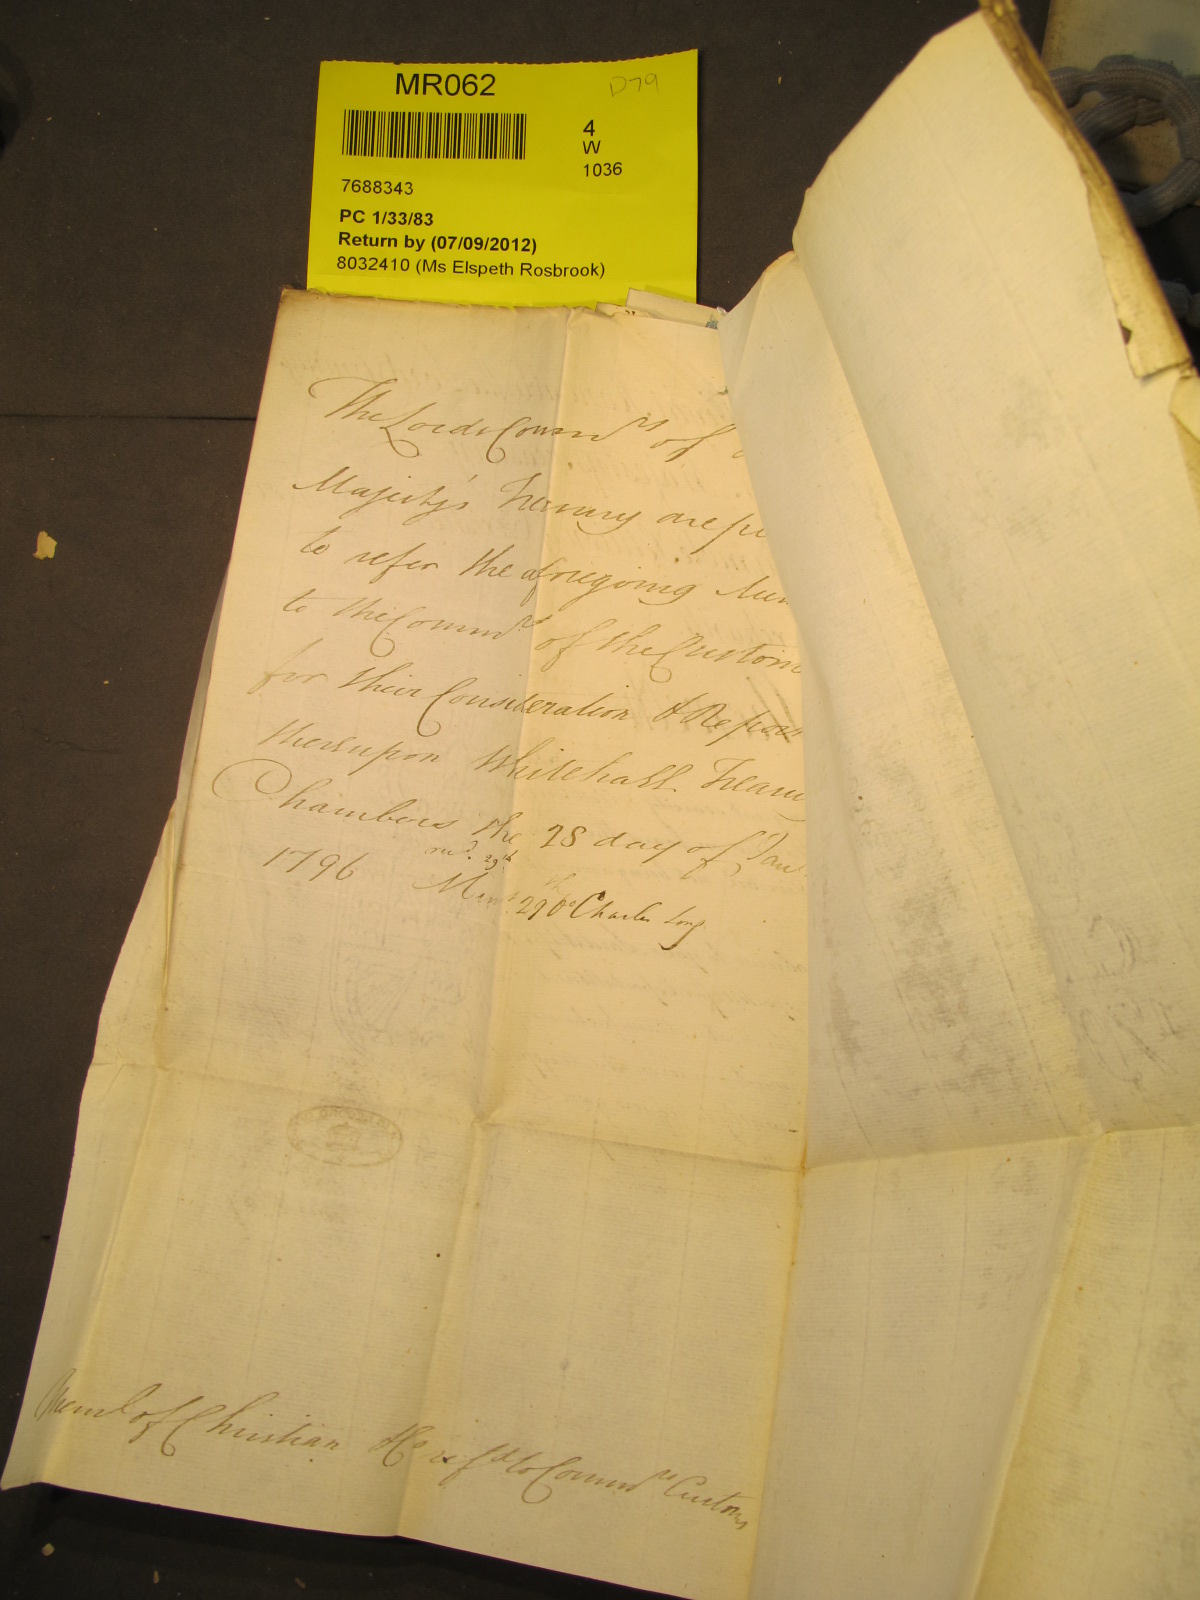 MR062
D79
4
W
1036
7688343
PC 1/33/83
Return by (07/09/2012)
8032410 (Ms Elspeth Rosbrook)
The Lords Commrs of
Majesty's Treasury are
to refer the aforegoing
to the Commrs of the Customs
for their Consideration & Report
thereupon Whitehall Treasury
Chambers the 28 day of
1796
29th
Charles Long
Meml of Christian &c refd to Commrs Customs